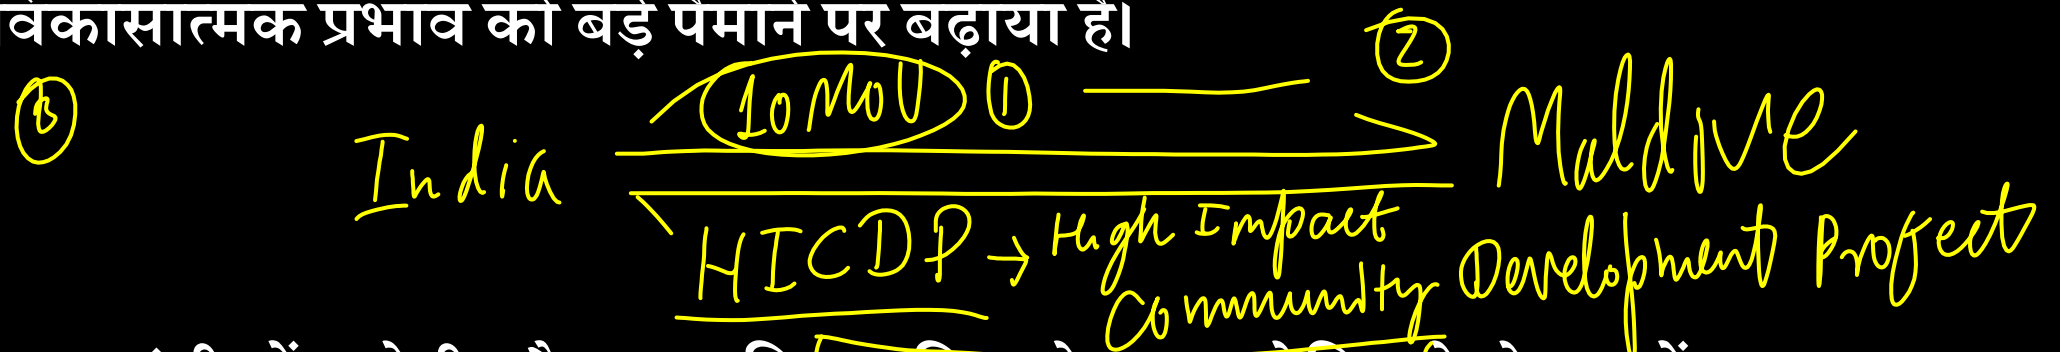 विकासात्मक प्रभाव को बड़े पैमाने पर बढ़ाया है।
②
③ 10 MoU ①
India Maldive
HICDP → High Impact
Community Development Project